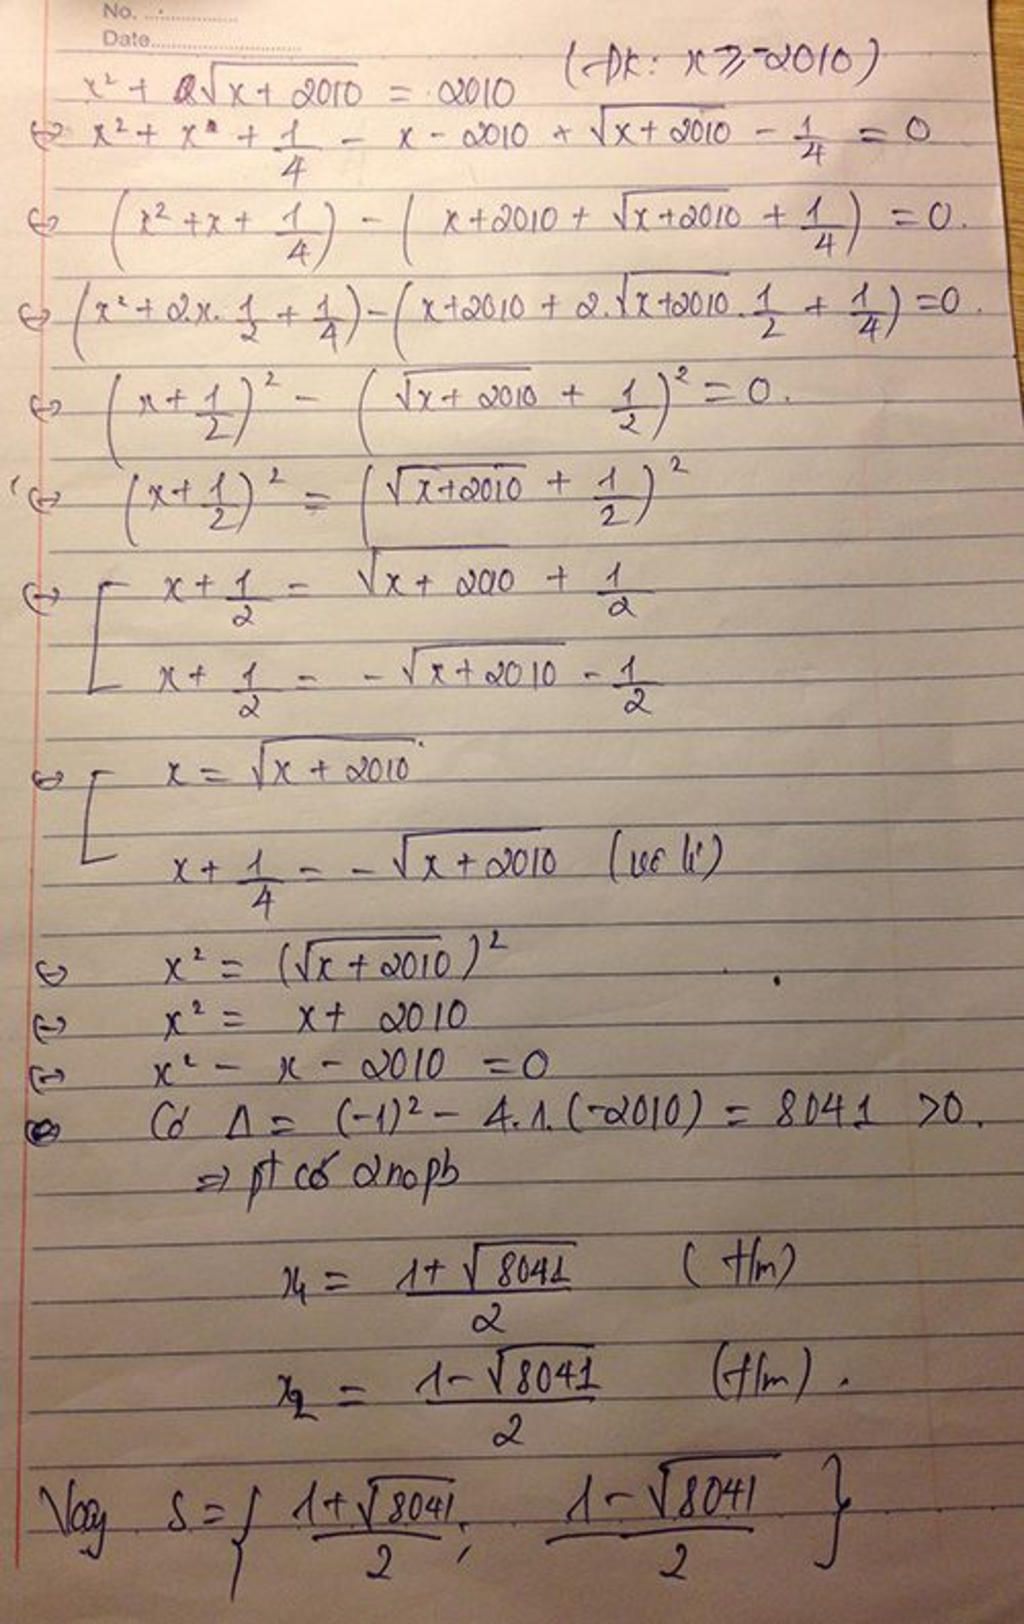 No. ...............
Date...............................
x² + √x+2010 = 2010 (Đk: x ≥ -2010)
⇔ x² + x + 1/4 - x - 2010 + √x+2010 - 1/4 = 0
⇔ (x² + x + 1/4) - (x+2010 + √x+2010 + 1/4) = 0.
⇔ (x² + 2.x.1/2 + 1/4) - (x+2010 + 2.√x+2010.1/2 + 1/4) = 0.
⇔ (x + 1/2)² - (√x+2010 + 1/2)² = 0.
⇔ (x + 1/2)² = (√x+2010 + 1/2)²
⇔ [ x + 1/2 = √x+2010 + 1/2
x + 1/2 = -√x+2010 - 1/2
⇔ [ x = √x+2010
x + 1/4 = -√x+2010 (vô lí)
⇔ x² = (√x+2010)²
⇔ x² = x + 2010
⇔ x² - x - 2010 = 0
⇔ Có Δ = (-1)² - 4.1.(-2010) = 8041 > 0.
⇒ pt có 2 nopb
x₁ = 1+√8041/2 (t/m)
x₂ = 1-√8041/2 (t/m).
Vậy S = { 1+√8041/2 ; 1-√8041/2 }